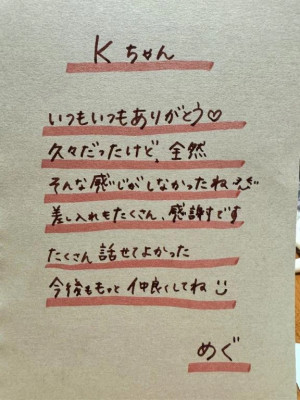 Kちゃん
いつもいつもありがとう♡
久々だったけど、全然
そんな感じがしなかったね
差し入れもたくさん、感謝です
たくさん話せてよかった
今後ももっと仲良くしてね
めぐ